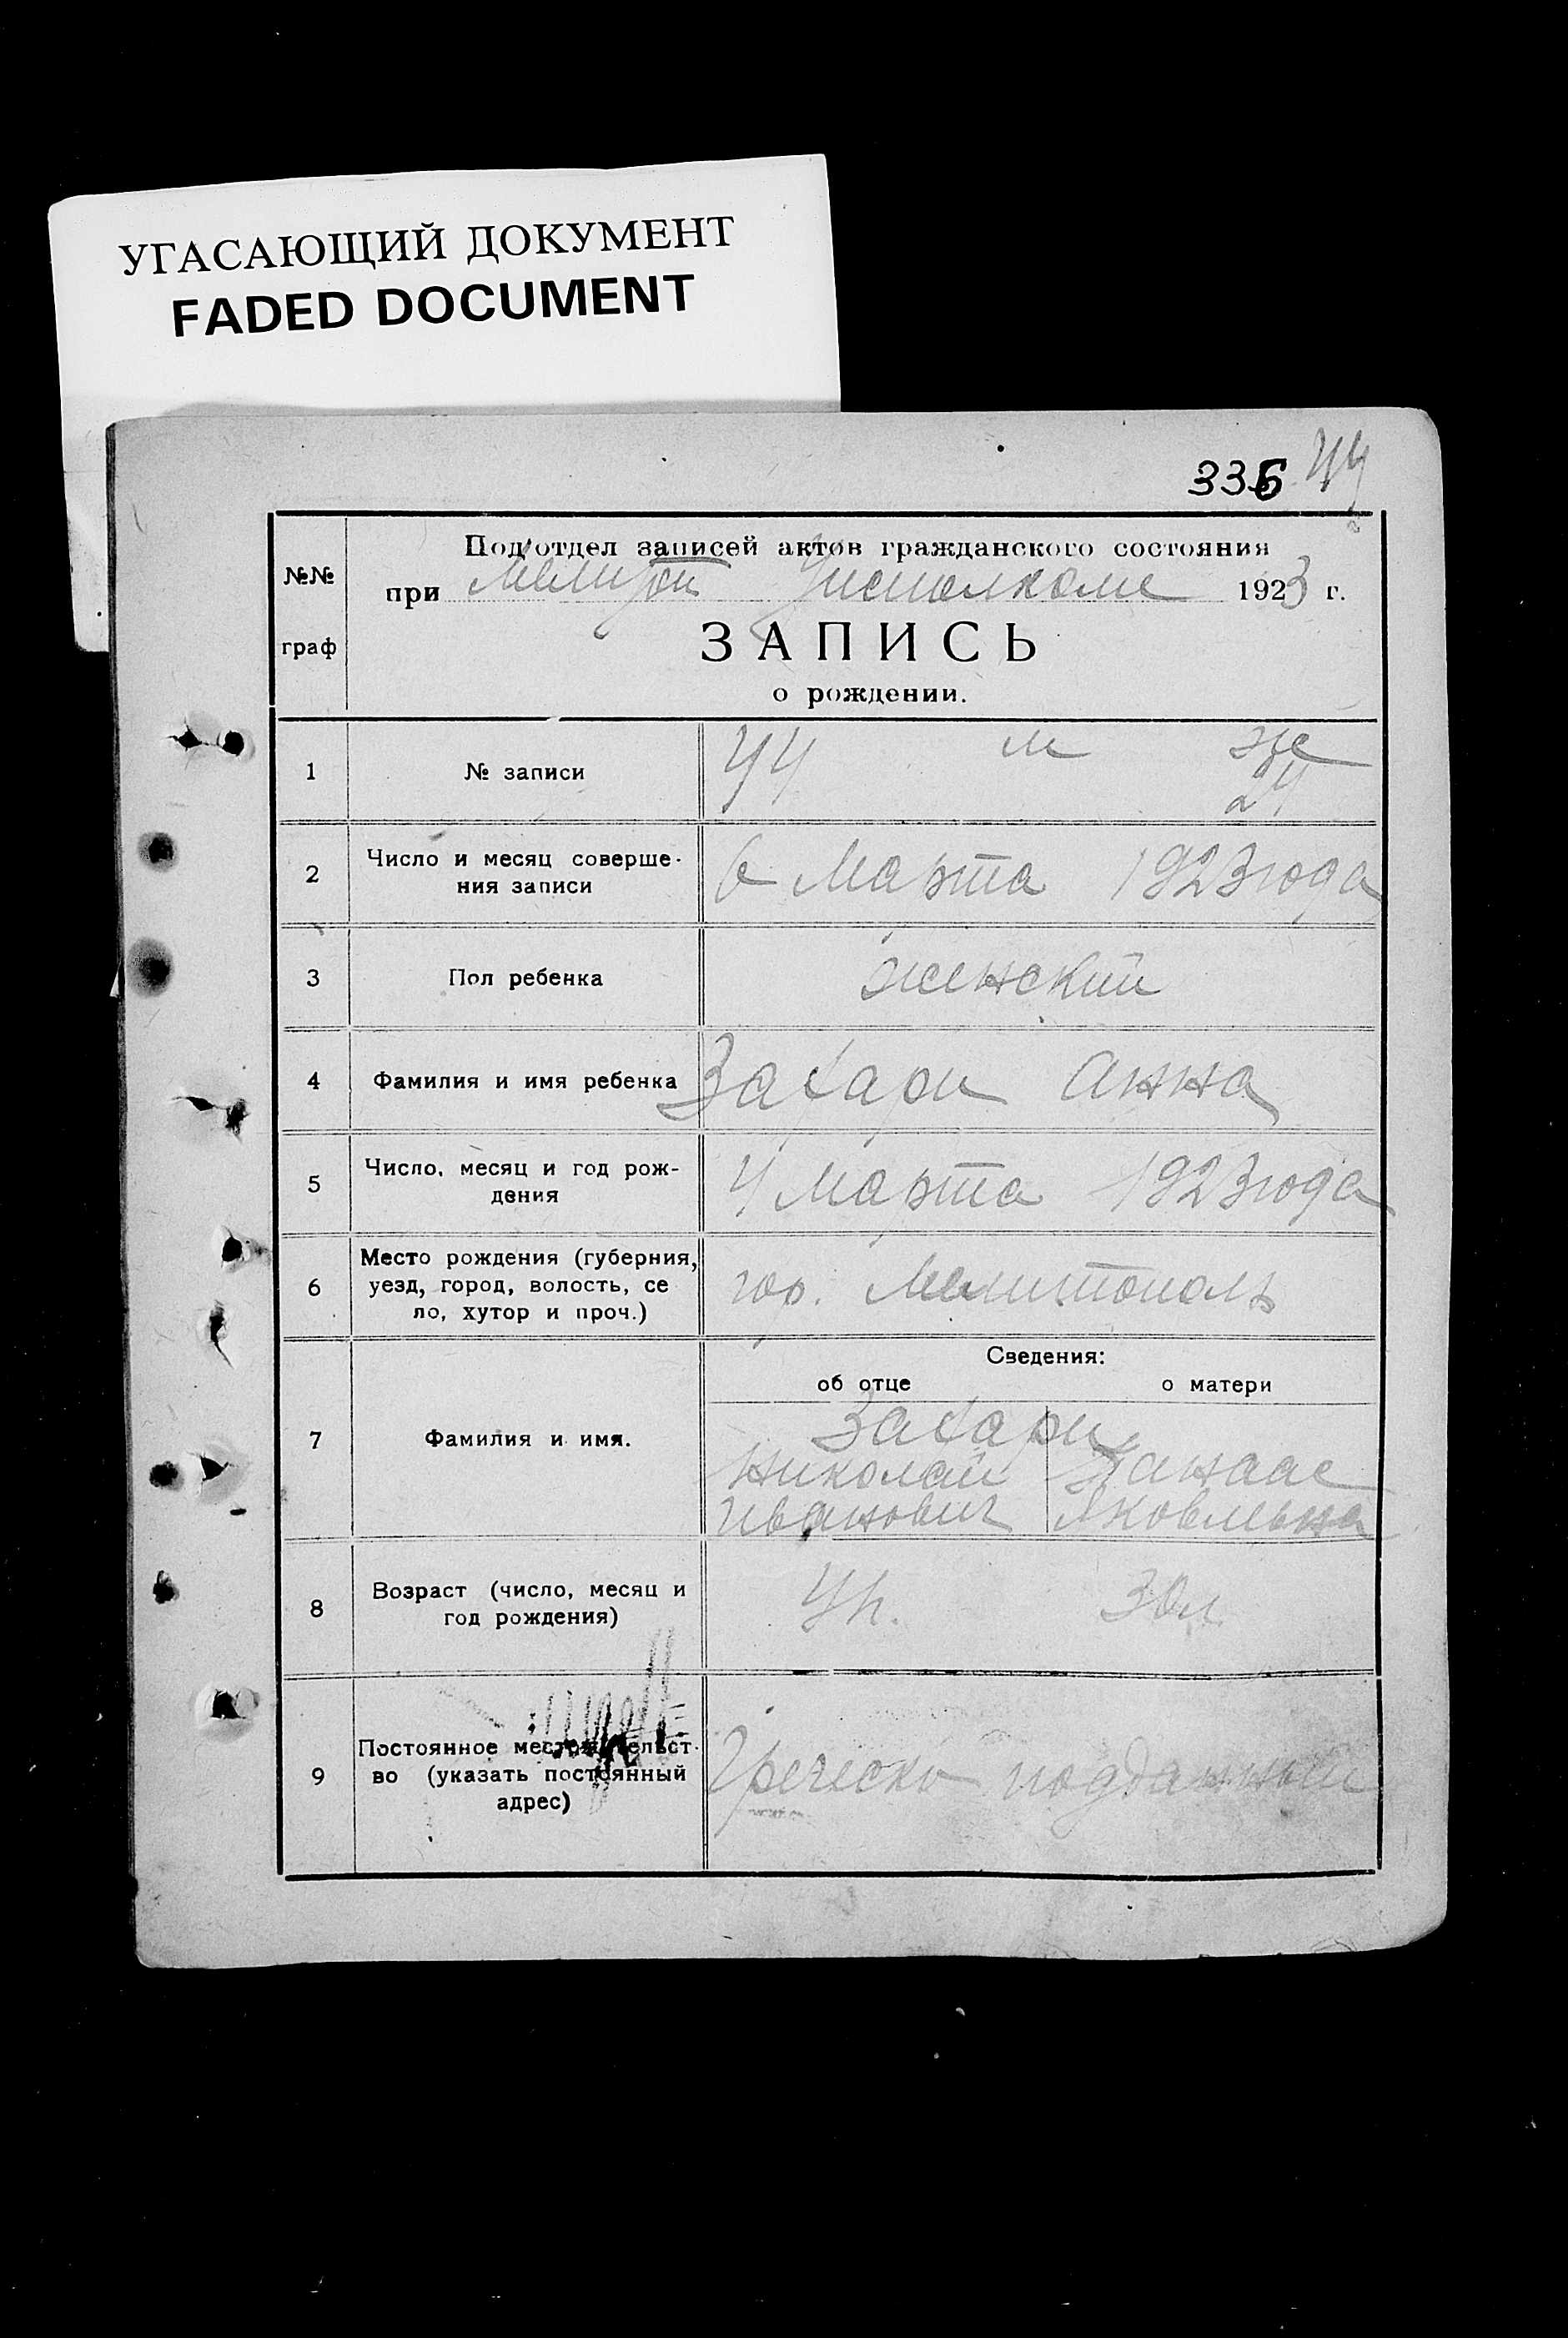 УГАСАЮЩИЙ ДОКУМЕНТ
FADED DOCUMENT
336 44
№№
граф
Под'отдел записей актов гражданского состояния
при Мелитоп Уисполкоме 1923 г.
ЗАПИСЬ
о рождении.
1 № записи 44 м же
24
2 Число и месяц соверше-
ния записи 6 Марта 1923 года
3 Пол ребенка женский
4 Фамилия и имя ребенка Захари Анна
5 Число, месяц и год рож-
дения 4 Марта 1923 года
6 Место рождения (губерния,
уезд, город, волость, се
ло, хутор и проч.) гор. Мелитополь
Сведения:
об отце о матери
7 Фамилия и имя. Захари
Николай
Иванович Яковлевна
8 Возраст (число, месяц и
год рождения) 30 л
9 Постоянное местожительст-
во (указать постоянный
адрес) Греческо подданный